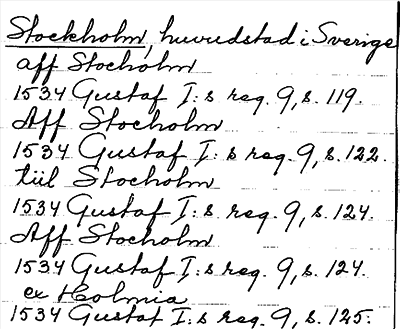 Stockholm, huvudstad i Sverige
aff Stocholm
1534 Gustaf I:s reg. 9, s. 119.
Aff Stocholm
1534 Gustaf I:s reg. 9, s. 122.
tiil Stocholm
1534 Gustaf I:s reg. 9, s. 124.
Aff Stocholm
1534 Gustaf I:s reg. 9, s. 124.
ex Holmia
1534 Gustaf I:s reg. 9, s. 125.